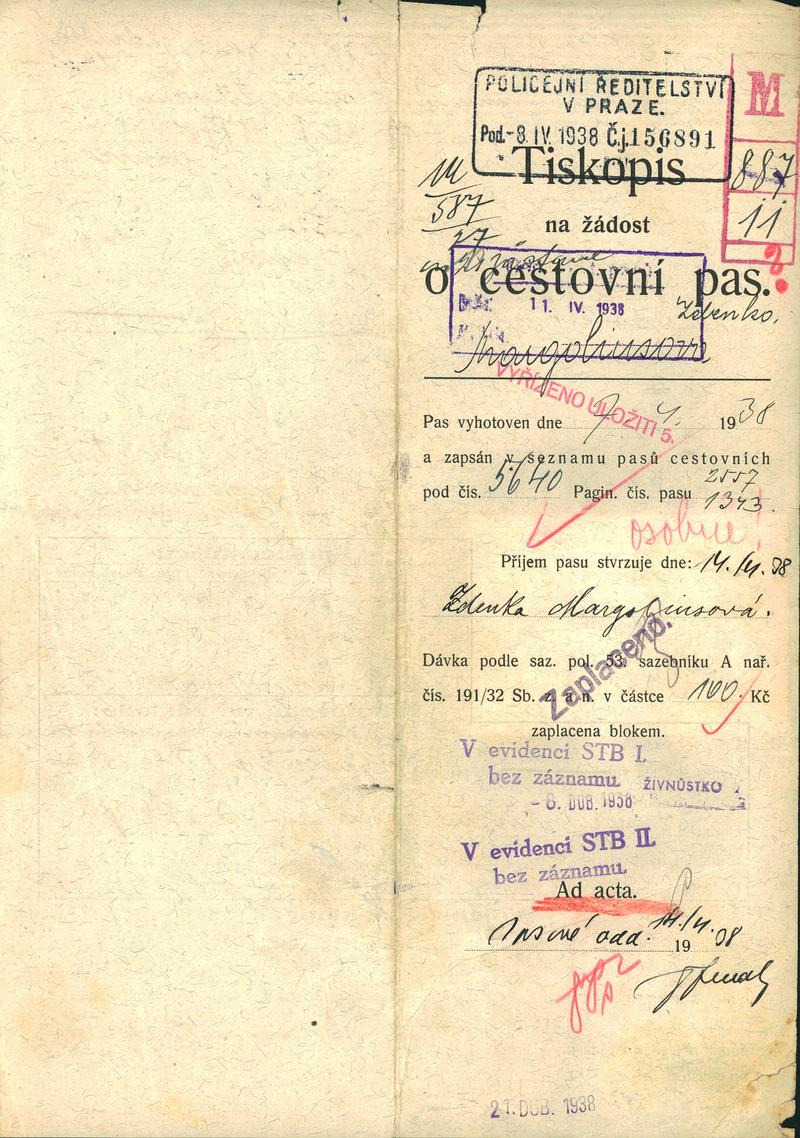 POLICEJNÍ ŘEDITELSTVÍ
V PRAZE.
Pod. - 8. IV. 1938 Č.j. 156891
M
887
11
Tiskopis
587
27
na žádost
o cestovní pas.
11. IV. 1938
Zdenko,
Margoliusová
VYŘÍZENO ULOŽITI 5.
Pas vyhotoven dne 7 4. 1938
a zapsán v seznamu pasů cestovních
pod čís. 5640 Pagin. čís. pasu 2557
1343.
osobne!
Příjem pasu stvrzuje dne: 14./4. 38
Zdenka Margoliusová.
Zaplaceno.
Dávka podle saz. pol. 53. sazebníku A nař.
čís. 191/32 Sb. z. a n. v částce 100. Kč
zaplacena blokem.
V evidenci STB I.
bez záznamu
ŽIVNŮSTKO
- 8. DUB. 1938
V evidenci STB II.
bez záznamu.
Ad acta.
pasové odd. 14./4. 1938
21. DUB. 1938